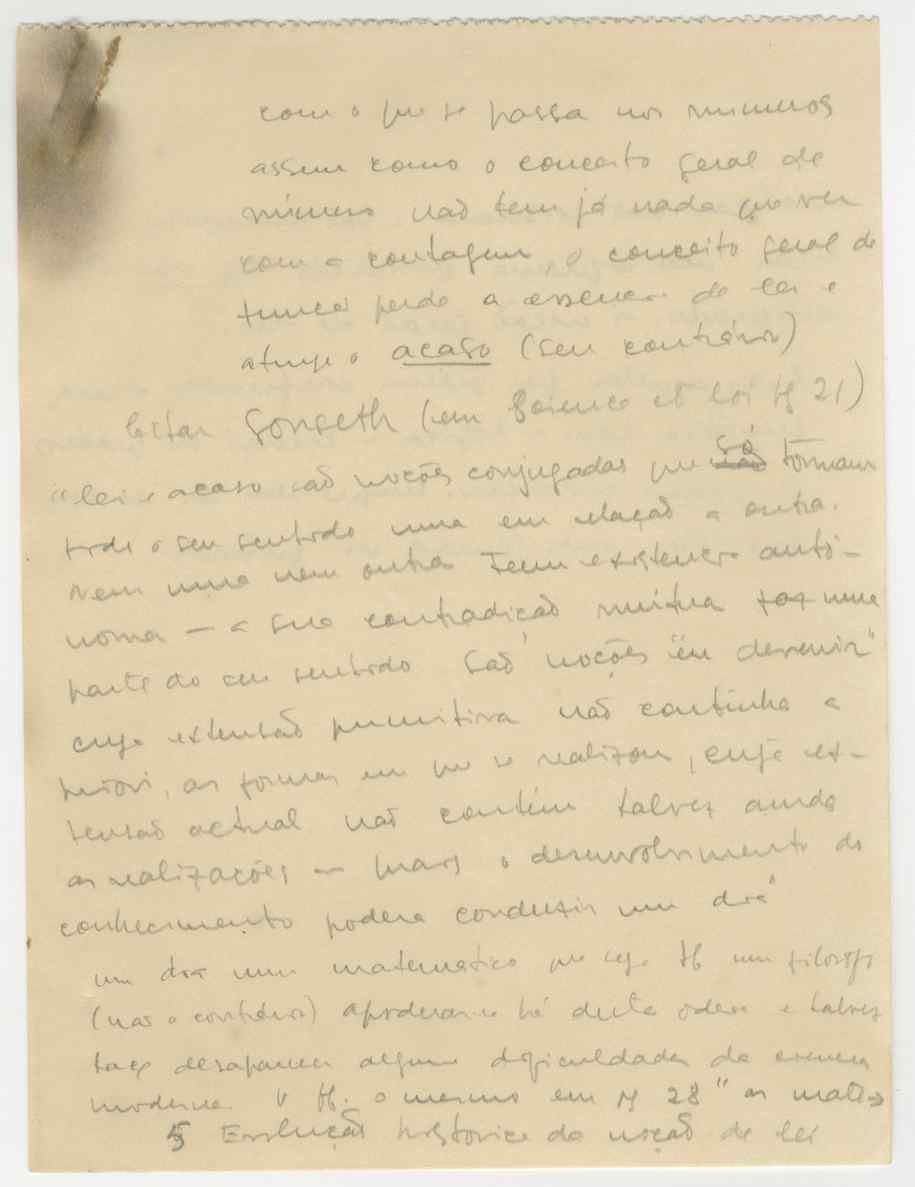 com o que se passa nos números
assim como o conceito geral de
número não tem já nada que ver
com a contagem o conceito geral de
função perde a essência de lei e
atinge o acaso (seu contrário)
Citar Gonseth (em Science et loi pg 21)
"lei e acaso são noções conjugadas que só tomam
todo o seu sentido uma em relação a outra.
Nem uma nem outra tem existência autó-
noma — a sua contradição mútua faz uma
parte do seu sentido São noções "en devenir"
cuja extensão primitiva não continha a
priori, as formas em que se realizam, cuja ex-
tensão actual não contém talvez ainda
as realizações a mais o desenvolvimento do
conhecimento poderá conduzir um dia"
um dia um matemático que seja tb um filósofo
(não o contrário) apoderar-se há desta ideia e talvez
faça desaparecer algumas dificuldades da ciência
moderna. V tb. o mesmo em pg 28 " as
5 Evolução histórica da noção de lei